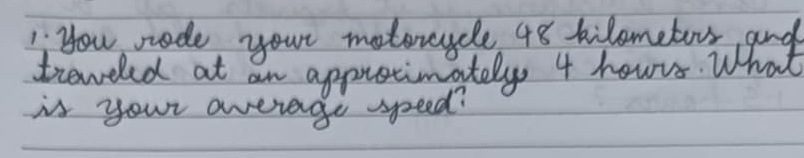 1. You rode your motorcycle 48 kilometers and
traveled at an approximately 4 hours. What
is your average speed?